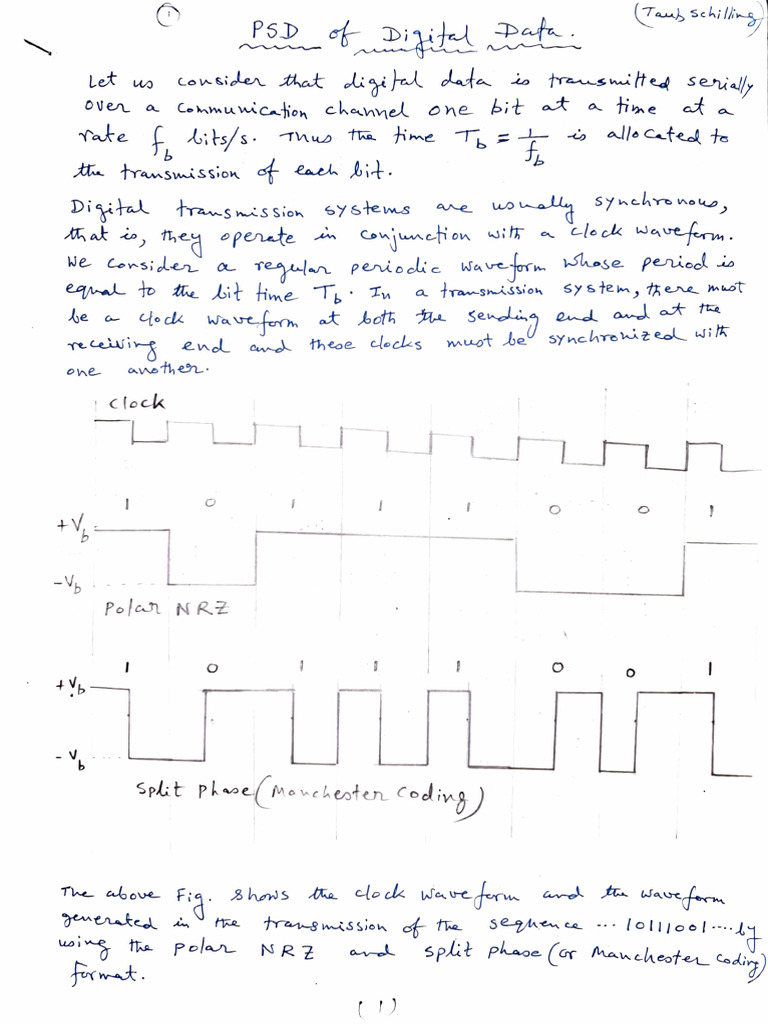 1
(Taub Schilling)
PSD of Digital Data.
Let us consider that digital data is transmitted serially
over a communication channel one bit at a time at a
rate f_b bits/s. Thus the time T_b = 1/f_b is allocated to
the transmission of each bit.
Digital transmission systems are usually synchronous,
that is, they operate in conjunction with a clock waveform.
We consider a regular periodic waveform whose period is
equal to the bit time T_b. In a transmission system, there must
be a clock waveform at both the sending end and at the
receiving end and these clocks must be synchronized with
one another.
Clock
1 0 1 1 1 0 0 1
+V_b
-V_b
Polar NRZ
1 0 1 1 1 0 0 1
+V_b
-V_b
Split Phase (Manchester Coding)
The above Fig. shows the clock waveform and the waveform
generated in the transmission of the sequence ...10111001.... by
using the polar NRZ and split phase (or Manchester coding)
format.
(1)